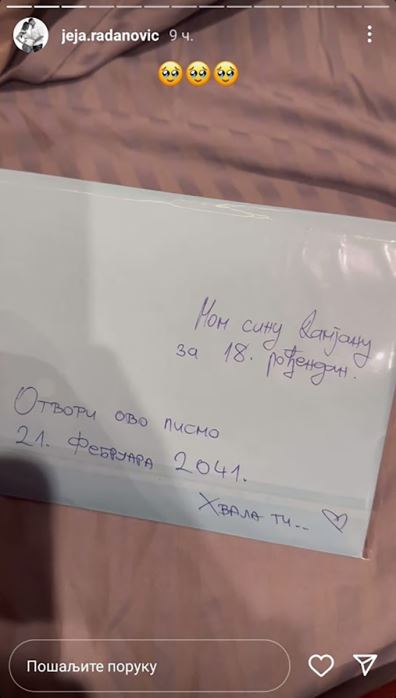 jeja.radanovic 9 ч.
Мом сину Дамјану
за 18. рођендан.
Отвори ово писмо
21. фебруара 2041.
Хвала ти.. ♡
Пошаљите поруку